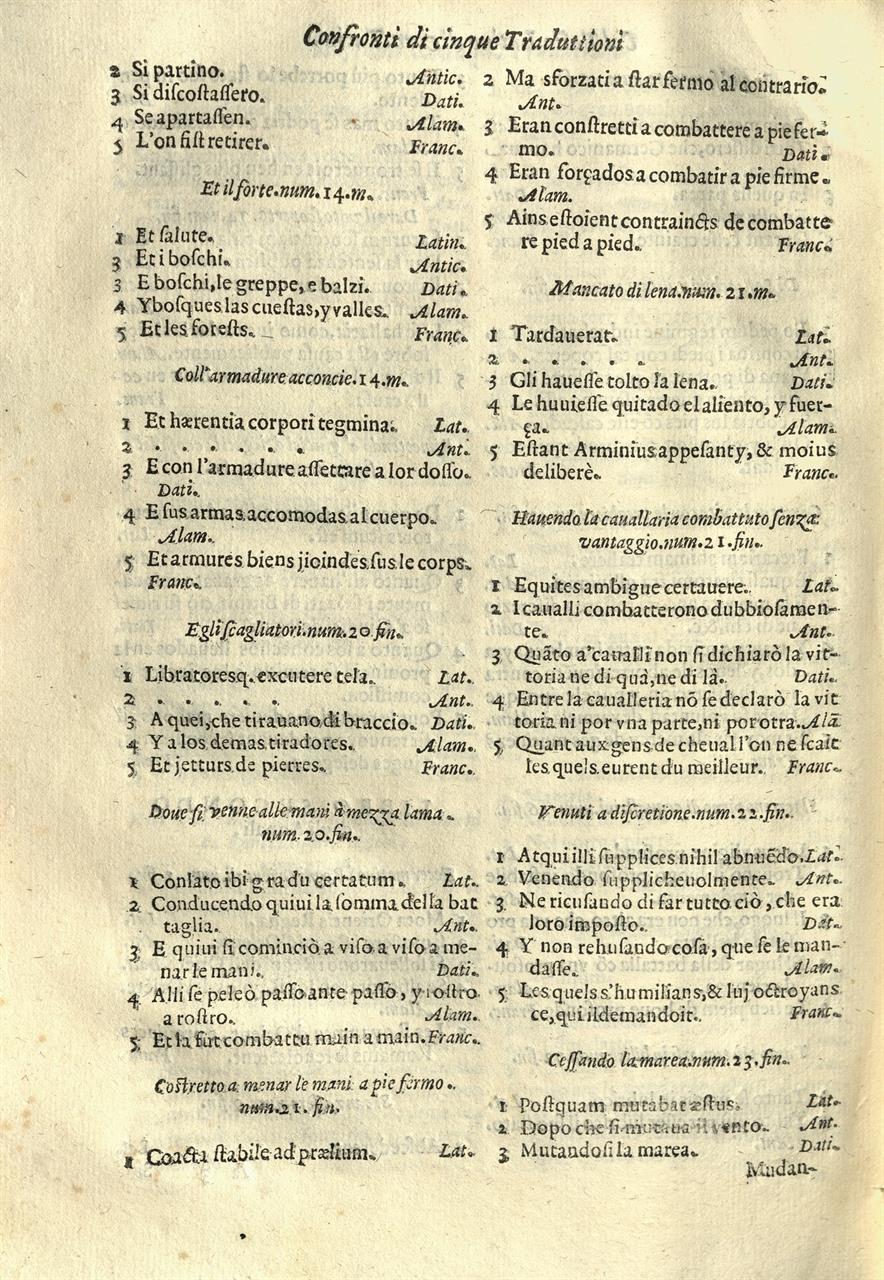 Confronti di cinque Traduttioni
2 Si partino. Antic.
3 Si discostaſſero. Dati.
4 Se apartaſſen. Alam.
5 L'on fiſt retirer. Franc.
Et il forte. num. 14. m.
1 Et ſalute. Latin.
3 Et i boſchi. Antic.
3 E boſchi, le greppe, e balzi. Dati.
4 Y boſques las cueſtas, y valles. Alam.
5 Et les foreſts. Franc.
Coll'armadure acconcie. 14. m.
1 Et hærentia corpori tegmina. Lat.
2 . . . . . . Ant.
3 E con l'armadure aſſettate a lor doſſo.
Dati.
4 E ſus armas accomodas al cuerpo.
Alam.
5 Et armures biens jioindes ſus le corps.
Franc.
E gli ſcagliatori. num. 20 fin.
1 Libratoresq. excutere tela. Lat.
2 . . . . . Ant.
3 A quei, che tirauano di braccio. Dati.
4 Y a los demas tiradores. Alam.
5 Et jetturs de pierres. Franc.
Doue ſi venne alle mani à mezza lama
num. 20. fin.
1 Conlato ibi gradu certatum. Lat.
2 Conducendo quiui la ſomma della bat
taglia. Ant.
3 E quiui ſi cominciò a viſo a viſo a me-
nar le mani. Dati.
4 Alli ſe peleò paſſo ante paſſo, y roſtro
a roſtro. Alam.
5 Et la fut combattu main a main. Franc.
Coſtretto a menar le mani a pie fermo.
num. 21. fin.
1 Coacta ſtabile ad prælium. Lat.
2 Ma sforzati a ſtar fermo al contrario.
Ant.
3 Eran conſtretti a combattere a pie fer-
mo. Dati.
4 Eran forçados a combatir a pie firme.
Alam.
5 Ains eſtoient contraincts de combatte
re pied a pied. Franc.
Mancato di lena. num. 21. m.
1 Tardauerat. Lat.
2 . . . . . Ant.
3 Gli haueſſe tolto la lena. Dati.
4 Le huuieſſe quitado el aliento, y fuer-
ça. Alam.
5 Eſtant Arminius appeſanty, & moius
deliberè. Franc.
Hauendo la cauallaria combattuto ſenza
vantaggio. num. 21. fin.
1 Equites ambigue certauere. Lat.
2 I caualli combatterono dubbioſamen-
te. Ant.
3 Quãto a'caualli non ſi dichiarò la vit-
toria ne di quà, ne di là. Dati.
4 Entre la caualleria nõ ſe declarò la vit
toria ni por vna parte, ni por otra. Alã
5 Quant aux gens de cheual l'on ne ſcait
les quels eurent du meilleur. Franc.
Venuti a diſcretione. num. 22. fin.
1 Atqui illi ſupplices nihil abnuẽdo. Lat.
2 Venendo ſupplicheuolmente. Ant.
3 Ne ricuſando di far tutto ciò, che era
loro impoſto. Dat.
4 Y non rehuſando coſa, que ſe le man-
daſſe. Alam.
5 Les quels s'humilians, & luj octroyans
ce, qui il demandoit. Franc.
Ceſſando la marea. num. 23. fin.
1 Poſtquam mutabat æſtus. Lat.
2 Dopo che ſi mutaua il vento. Ant.
3 Mutandoſi la marea. Dati.
Mudan-